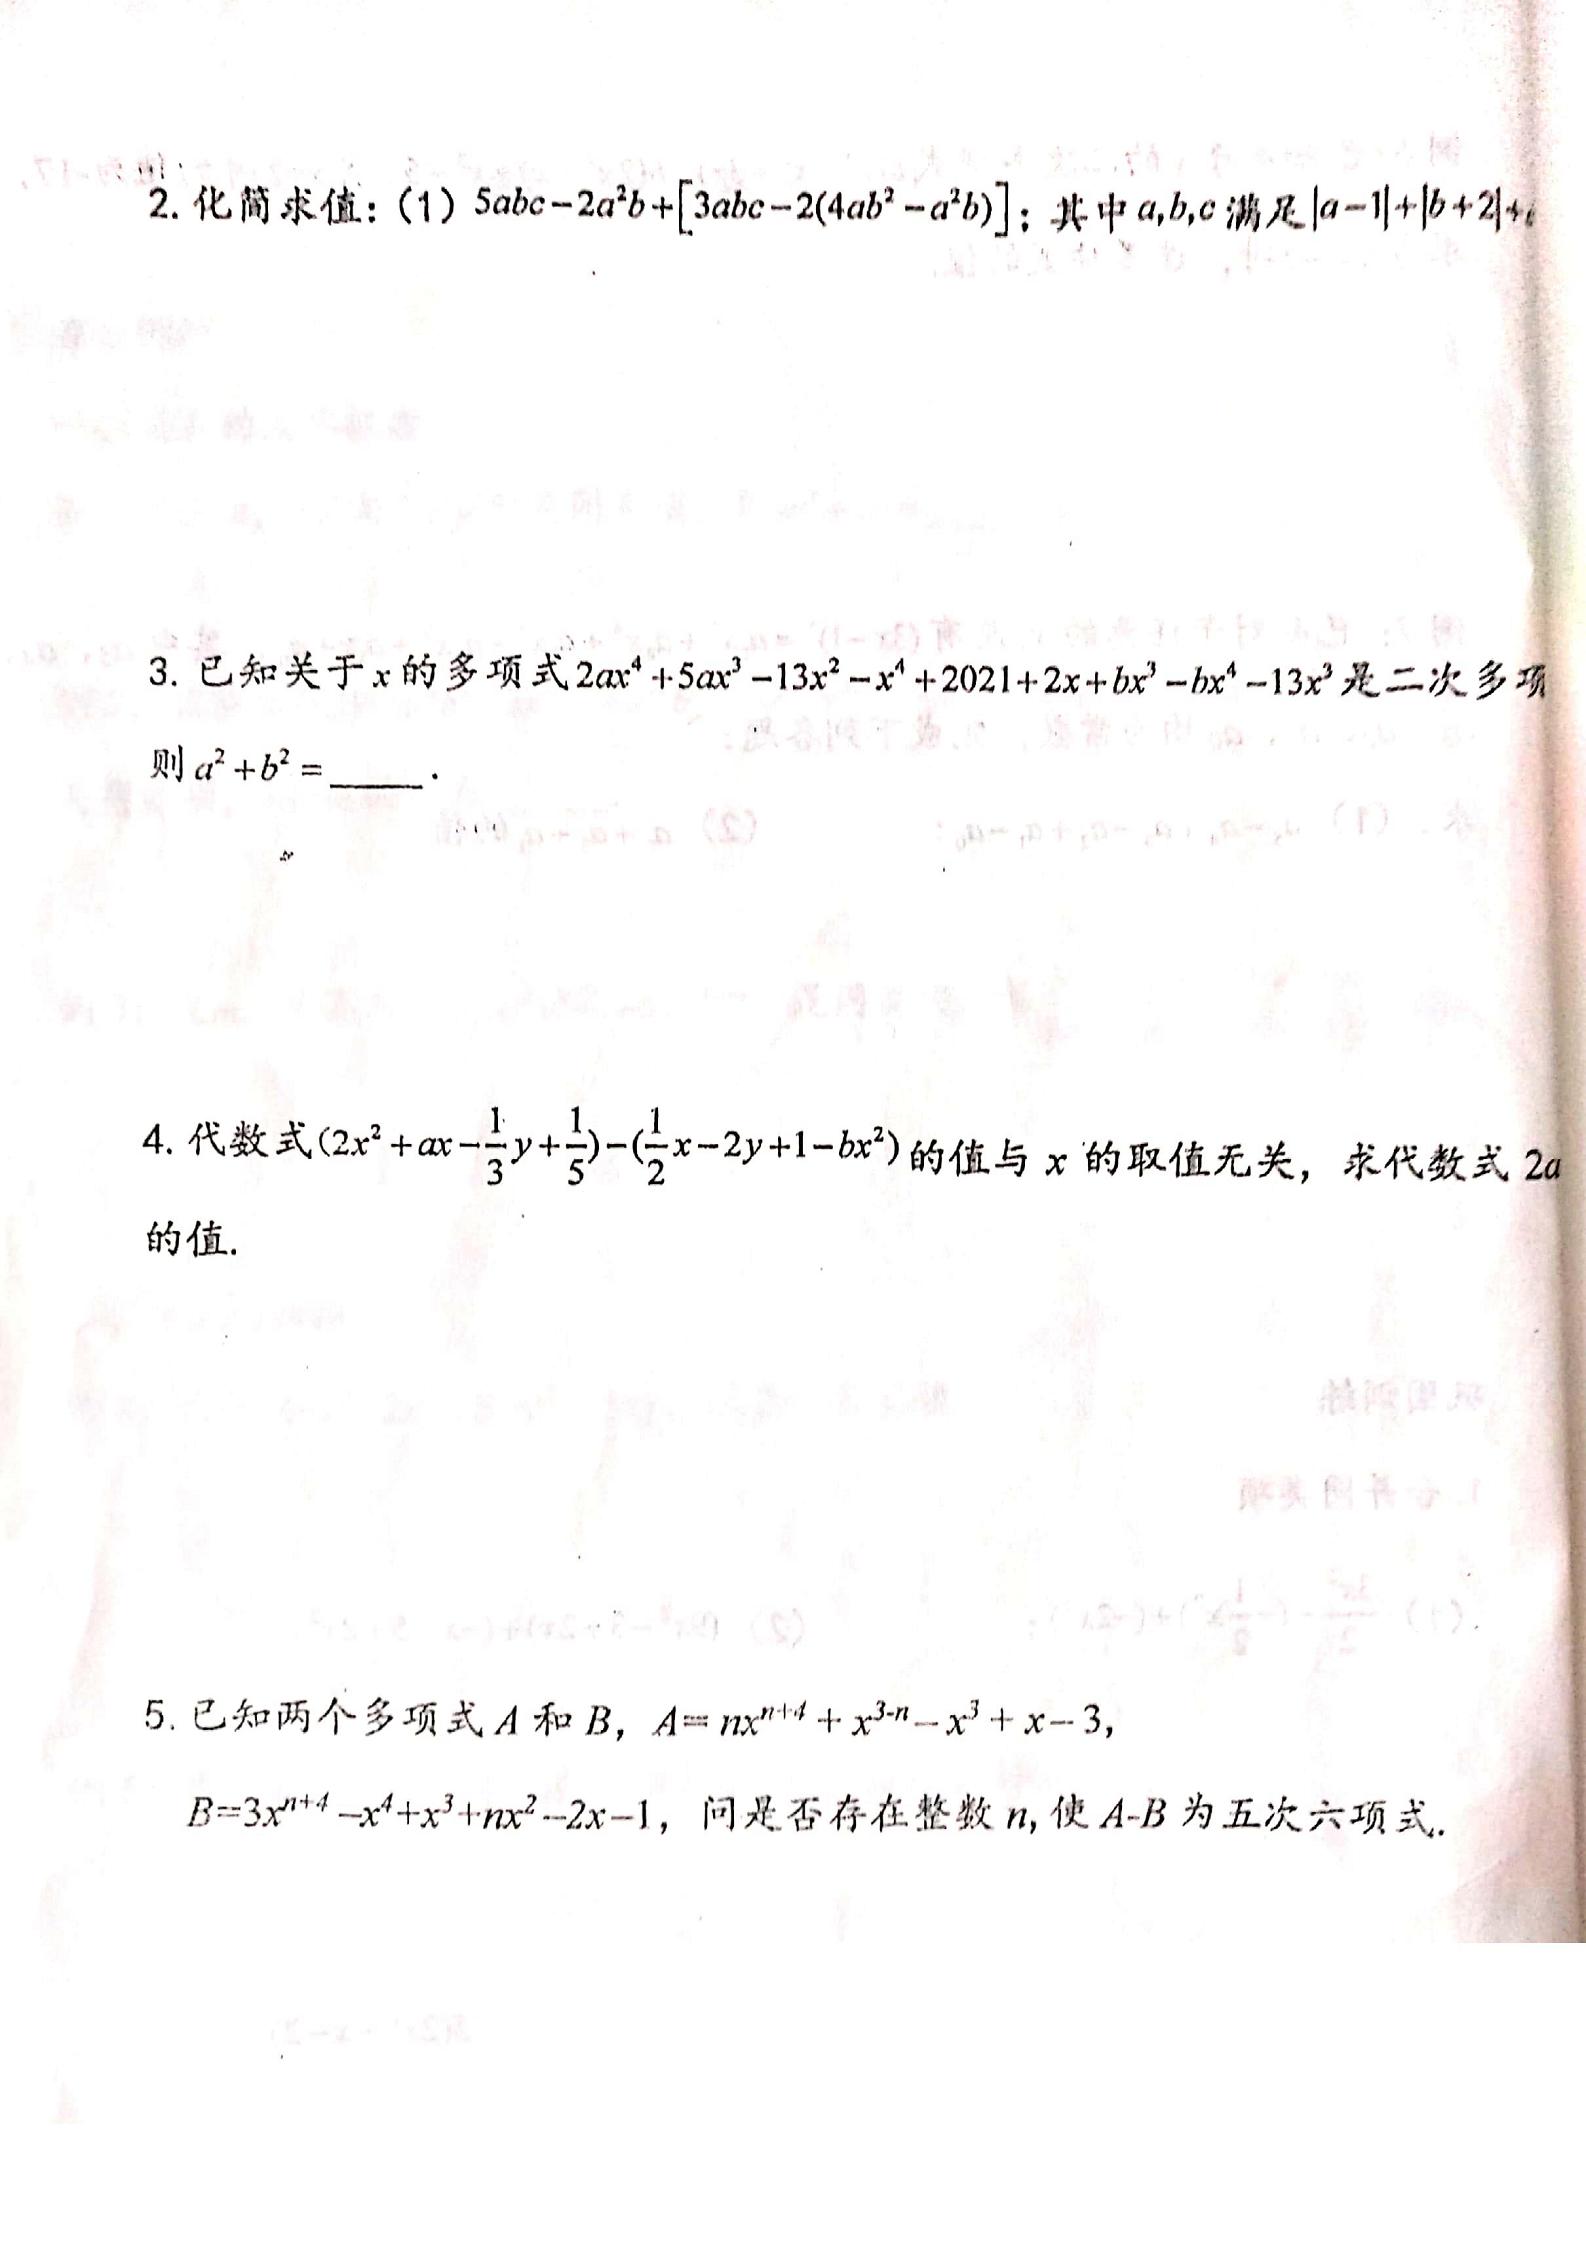 2. 化简求值：（1）5abc−2a²b+[3abc−2(4ab²−a²b)]；其中 a,b,c 满足|a−1|+|b+2|+
3. 已知关于 x 的多项式 2ax⁴+5ax³−13x²−x⁴+2021+2x+bx³−bx⁴−13x³ 是二次多项
则 a²+b²=_____.
4. 代数式(2x²+ax−1/3y+1/5)−(1/2x−2y+1−bx²) 的值与 x 的取值无关，求代数式 2a
的值.
5. 已知两个多项式 A 和 B，A=nxⁿ⁺⁴+x³⁻ⁿ−x³+x−3,
B=3xⁿ⁺⁴−x⁴+x³+nx²−2x−1，问是否存在整数 n, 使 A-B 为五次六项式.